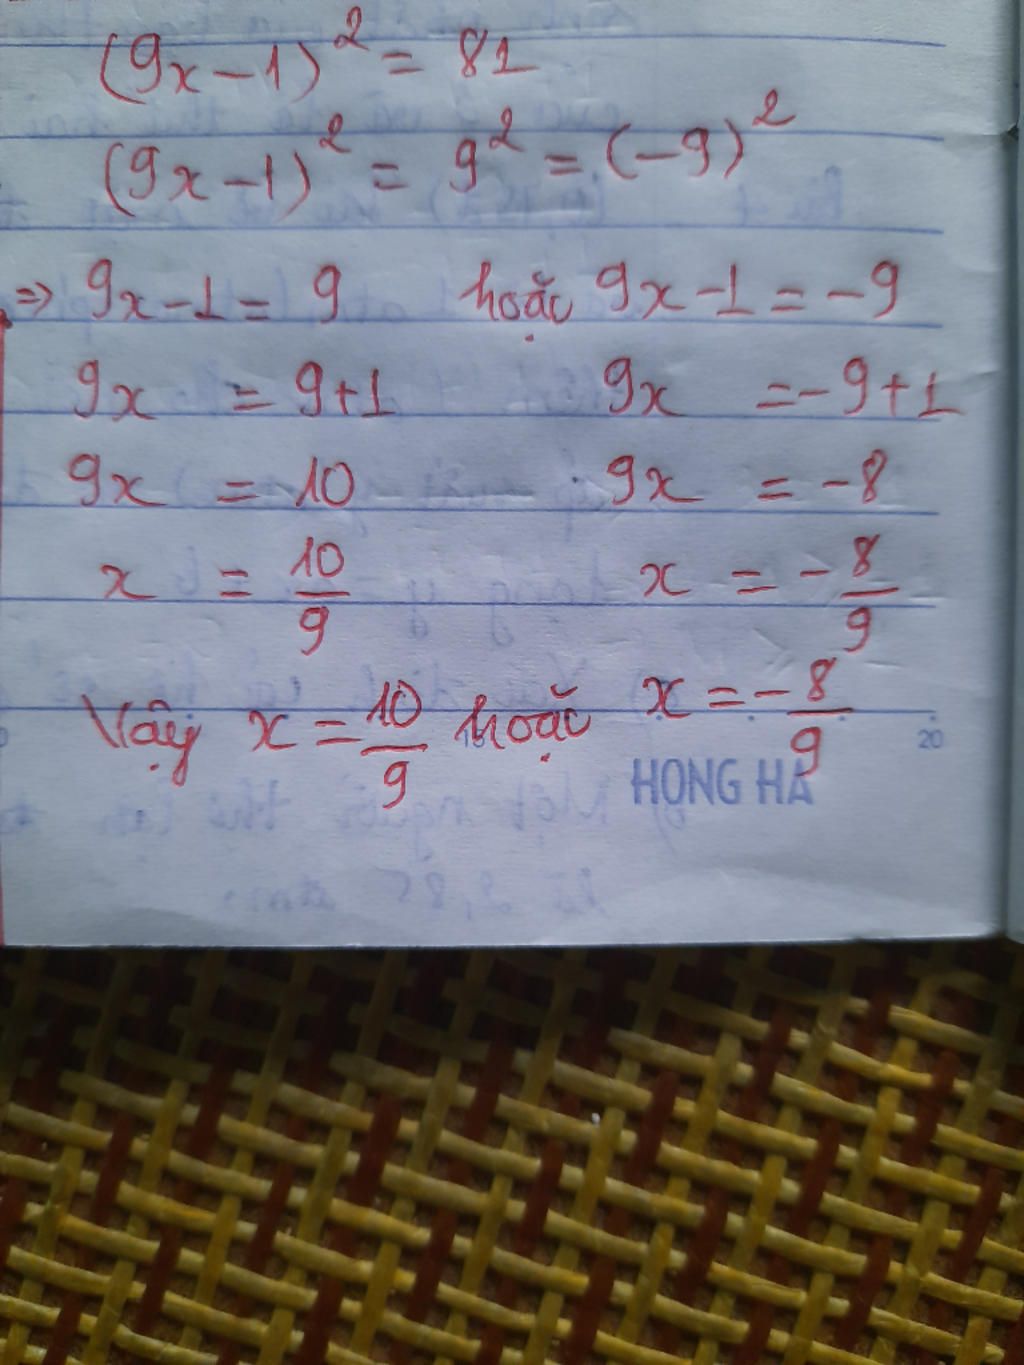 (9x-1)² = 81
(9x-1)² = 9² = (-9)²
⇒ 9x-1 = 9 hoặc 9x-1 = -9
9x = 9+1 9x = -9+1
9x = 10 9x = -8
x = 10/9 x = -8/9
Vậy x = 10/9 hoặc x = -8/9
20
HONG HA